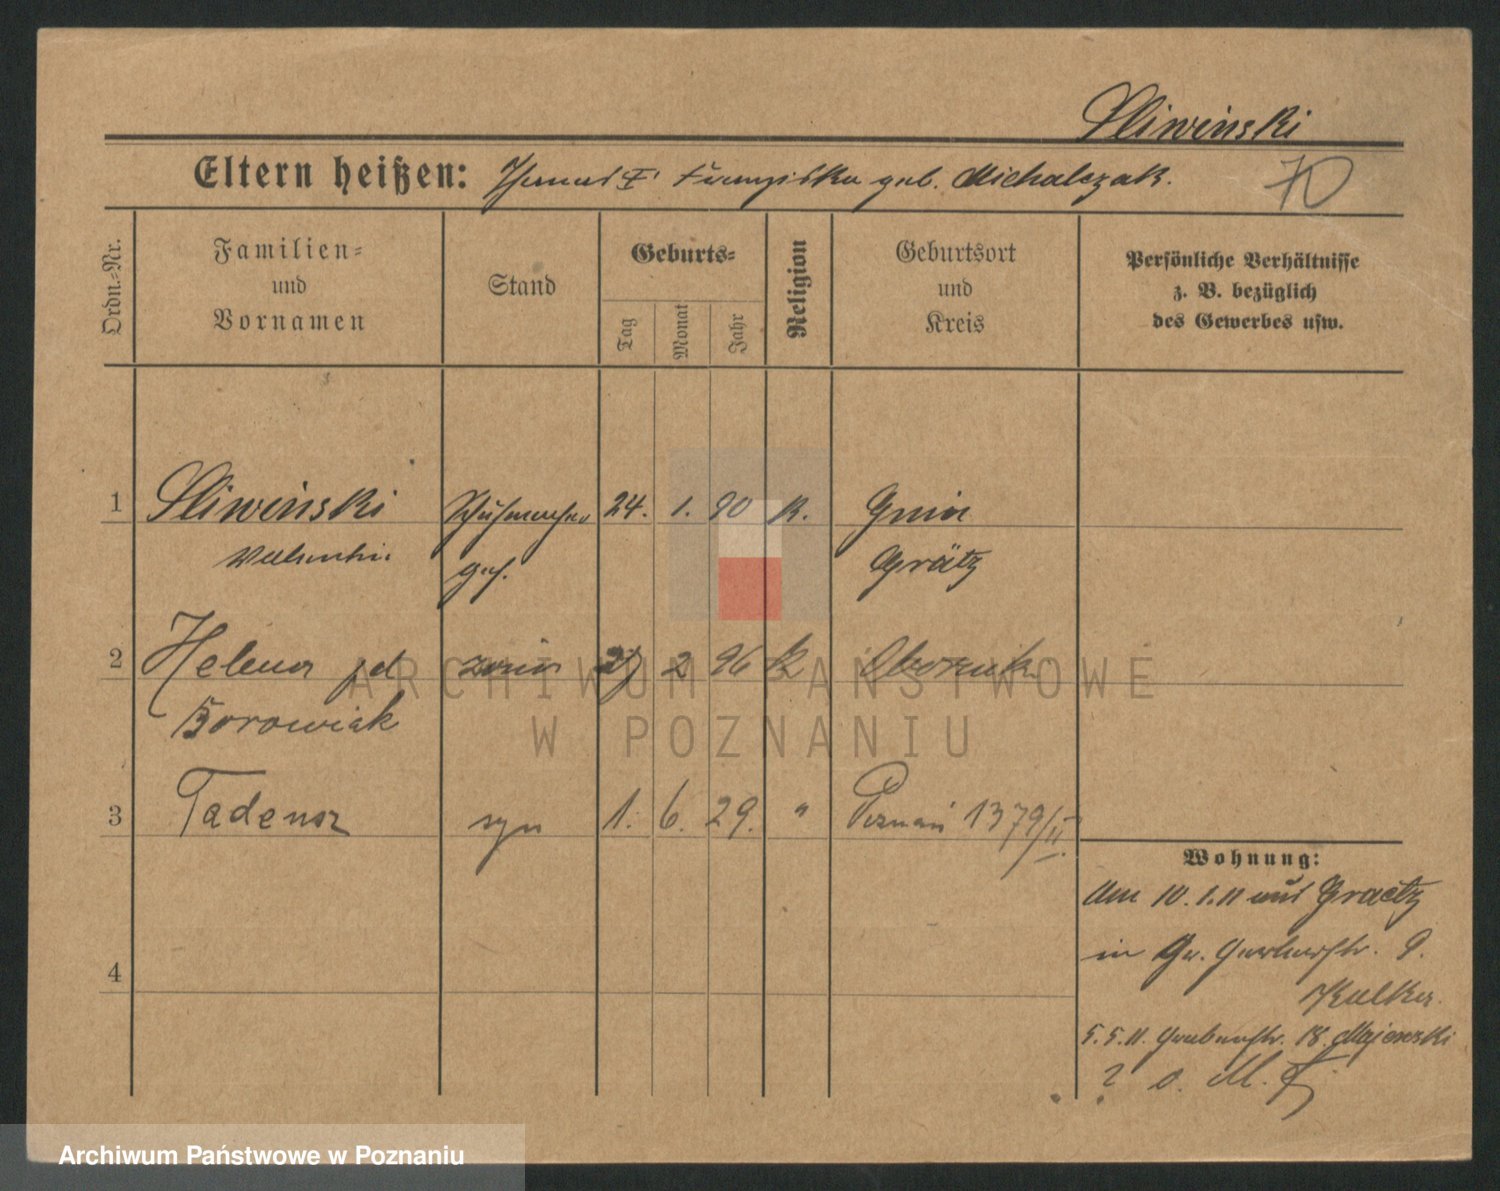 Sliwinski
Eltern heißen: Thomas F. Franziska geb. Michalczak.
70
Ordn.-Nr.
Familien-
und
Vornamen
Stand
Geburts-
Tag
Monat
Jahr
Religion
Geburtsort
und
Kreis
Persönliche Verhältnisse
z. B. bezüglich
des Gewerbes usw.
1 Sliwinski Schuhmacher 24. 1. 90 k. Gnin
Valentin ges. Grätz
2 Helena zona 27 2 96 k Obornik
Borowiak
3 Tadeusz syn 1. 6. 29. " Poznań 1379/II.
4
Wohnung:
Am 10.1.11 aus Graetz
in Gr. Gerberstr. 9.
Kulka
5.5.11. Grabenstr. 18. Majewski
? o. M.
ARCHIWUM PAŃSTWOWE
W POZNANIU
Archiwum Państwowe w Poznaniu